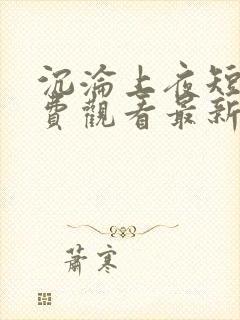 沉淪上夜短
費觀看最新
蕭寒